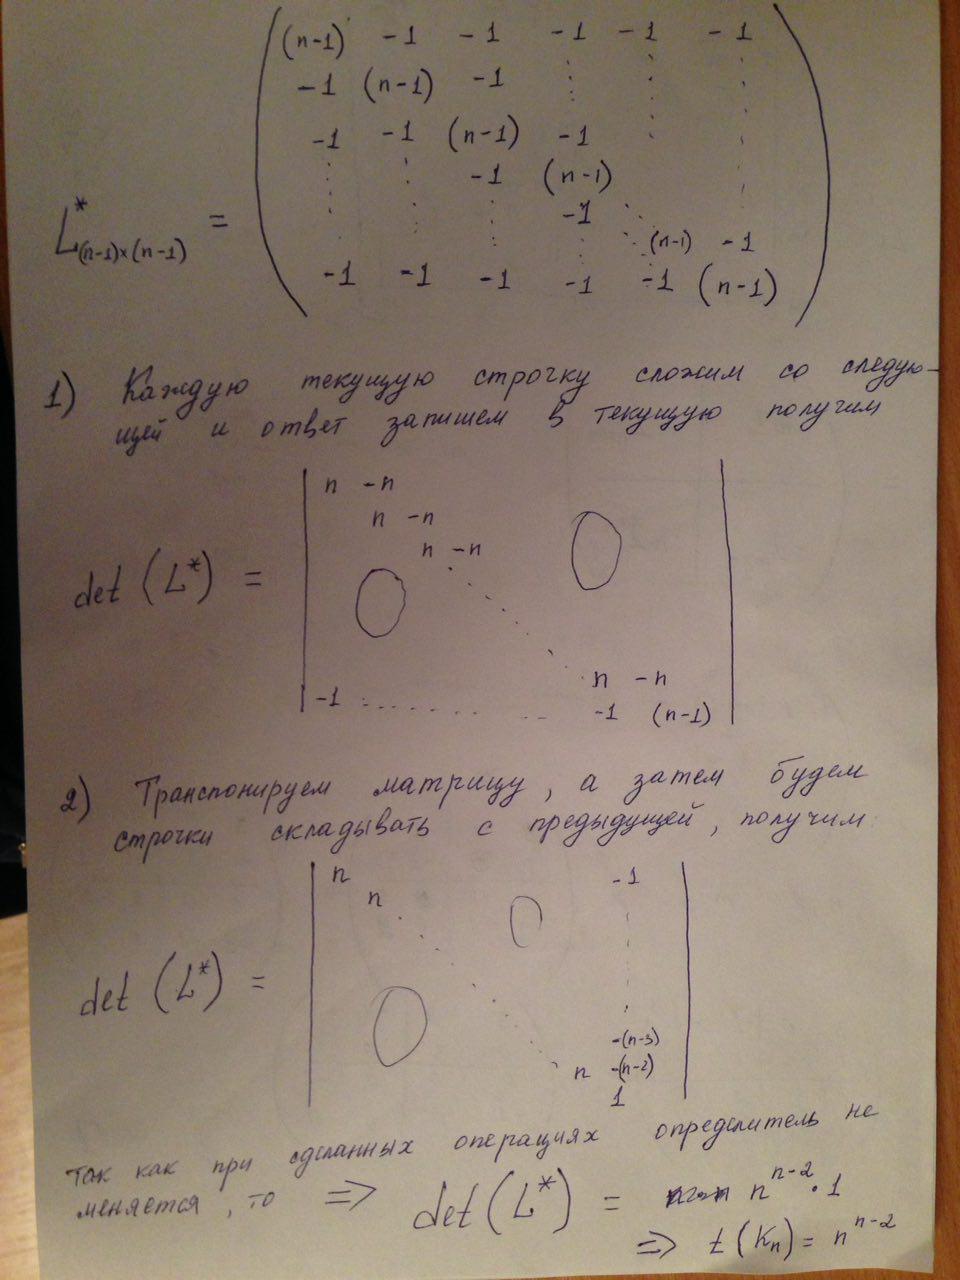 (n-1) -1 -1 -1 -1 -1
-1 (n-1) -1
-1 -1 (n-1) -1
-1 (n-1)
-1
L*(n-1)×(n-1) =
(n-1) -1
-1 -1 -1 -1 -1 (n-1)
1) Каждую текущую строчку сложим со следую-
щей и ответ запишем в текущую получим
n -n
n -n
n -n
0
0
det (L*) =
n -n
-1 ........ -1 (n-1)
2) Транспонируем матрицу, а затем будем
строчки складывать с предыдущей, получим
n -1
n
0
0
det (L*) =
-(n-3)
n -(n-2)
1
так как при сделанных операциях определитель не
меняется, то => det (L*) = n^(n-2) · 1
=> t (Kn) = n^(n-2)